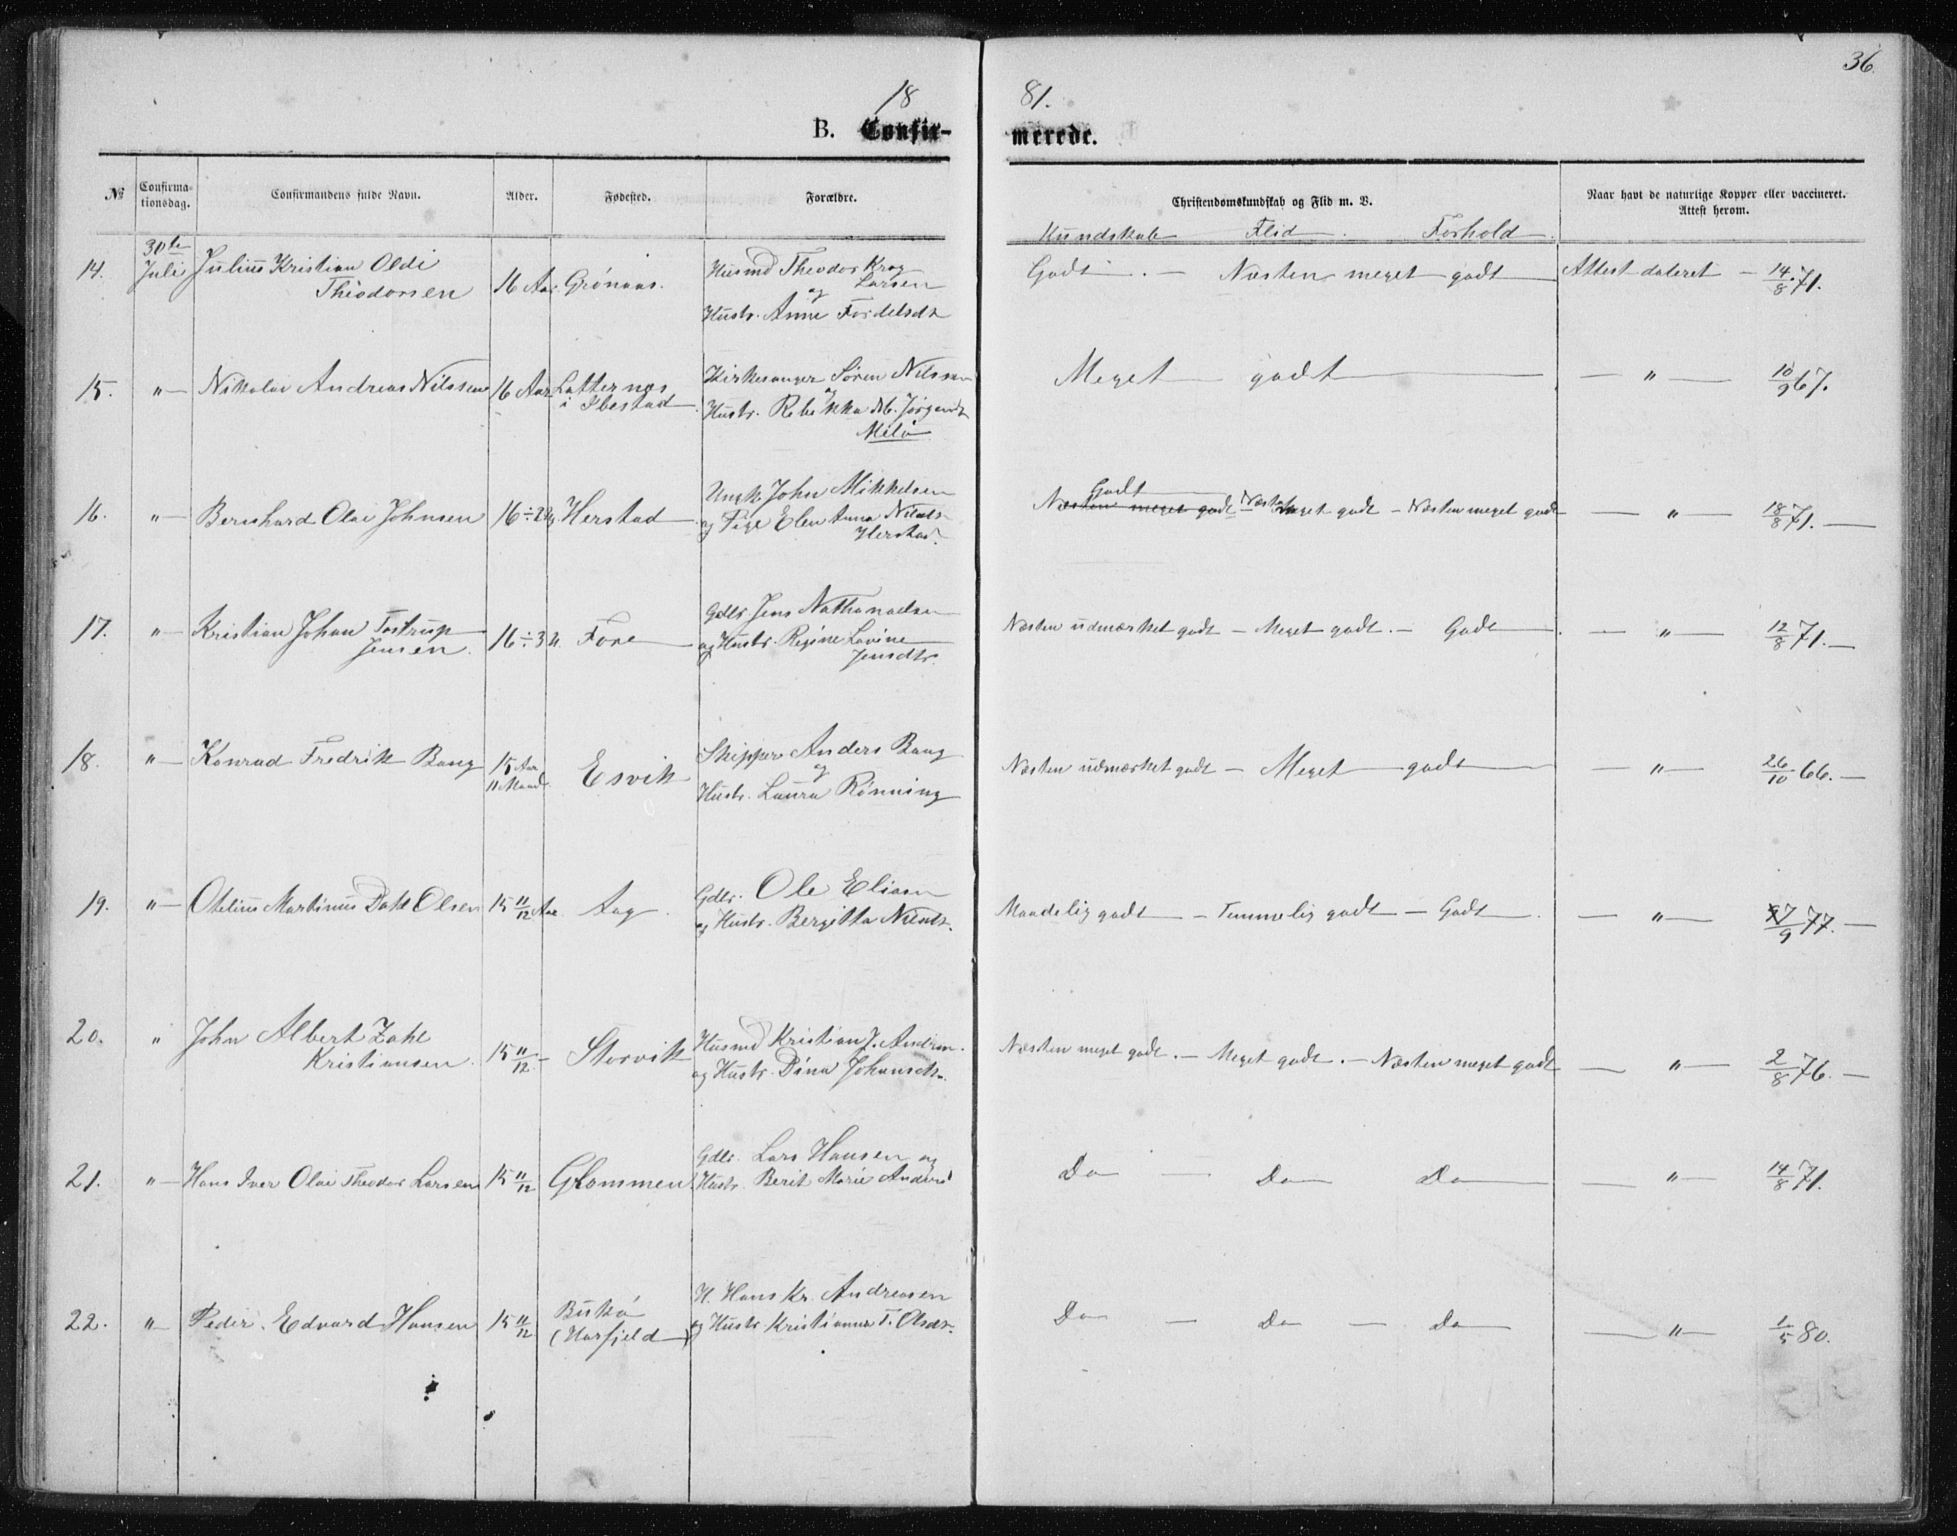 36.
18 81.
B. Confir- merede.
№ Confirma- tionsdag. Confirmandens fulde Navn. Alder. Fødested. Forældre. Christendomskundskab og Flid m. V. Naar havt de naturlige Kopper eller vaccineret. Attest herom.
Kundskab Flid. Forhold.
14. 30te Juli Julius Kristian Oldi Theodorsen 16 Aar Grønaas. Husmd Theodor Krog Larsen og Hustr. Anne Fordelsdt Godt. — Næsten meget godt Attest dateret — 14/8 71.
15. " — Nikolai Andreas Nilssen 16 Aar Latternæs i Ibestad Kirkesanger Søren Nilssen og Hustr. Rebekka M. Jørgensdt Melø Meget godt — " — 10/9 67.
16. " — Bernhard Olai Johnsen 16 ÷ Herstad Ungk. John Mikkelsen og Pige Elen Anna Nilsdt Herstad. Godt Næsten meget godt Næsten meget godt — Næsten meget godt — " — 18/8 71. —
17. " — Kristian Johan Tostrup Jensen. 16 ÷ 3 u. Fore Gdbr Jens Nathanaelsen og Hustr. Regine Lovine Jensdtr. Næsten udmærket godt — Meget godt. — Godt. — " — 12/8 71. —
18. " — Konrad Fredrik Bang 15 Aar 11 Maand Esvik Skipper Anders Bang og Hustr. Laura Rønning Næsten udmærket godt — Meget godt — " — 26/10 66. —
19. " — Otelius Martinus Dahl Olsen 15 11/12 Aar Aag. Gdbr. Ole Eliasen og Hustr. Bergitta Nilsdt. Maadelig godt — Temmelig godt — Godt. — " — /9 77. —
20. " John Albert Zahl Kristiansen. 15 11/12 — Storvik Husmd Kristian J. Andrsn. og Hustr. Dina Johansdtr. Næsten meget godt. — Meget godt. — Næsten meget godt — " — 2/8 76. —
21. " — Hans Iver Olai Theodor Larsen 15 11/12 Glommen Gdbr. Lars Hansen og Hustr. Berit Marie Andersd Do — Do Do — " — 14/8 71.
22. " — Peder Edvard Hansen 15 11/12 Buskø (Harfjeld) H. Hans Kr. Andreasen og Hustr Kristianna T. Olsdt. Do — Do — Do — " — 1/5 80.